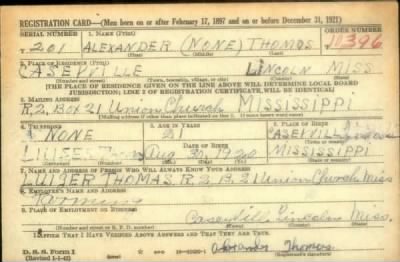 REGISTRATION CARD—(Men born on or after February 17, 1897 and on or before December 31, 1921)
SERIAL NUMBER 1. NAME (Print) ORDER NUMBER
201 ALEXANDER (NONE) THOMAS 10396
(First) (Middle) (Last)
2. PLACE OF RESIDENCE (Print)
CASEYVILLE LINCOLN MISS
(Number and street) (Town, township, village, or city) (County) (State)
[THE PLACE OF RESIDENCE GIVEN ON THE LINE ABOVE WILL DETERMINE LOCAL BOARD
JURISDICTION; LINE 2 OF REGISTRATION CERTIFICATE WILL BE IDENTICAL]
3. MAILING ADDRESS
R.2, BOX 21 Union Church MISSISSIPPI
[Mailing address if other than place indicated on line 2. If same insert word same]
4. TELEPHONE 5. AGE IN YEARS 6. PLACE OF BIRTH
NONE 21 CASEYVILLE
DATE OF BIRTH
Aug 30, 1920 MISSISSIPPI
7. NAME AND ADDRESS OF PERSON WHO WILL ALWAYS KNOW YOUR ADDRESS
THOMAS R.2, B.21 Union Church, Miss
8. EMPLOYER'S NAME AND ADDRESS
Farming
9. PLACE OF EMPLOYMENT OR BUSINESS
Caseyville, Lincoln Miss.
(Number and street or R. F. D. number) (Town) (County) (State)
I AFFIRM THAT I HAVE VERIFIED ABOVE ANSWERS AND THAT THEY ARE TRUE.
D. S. S. Form 1
(Revised 1-1-42) (over)
Alexander Thomas